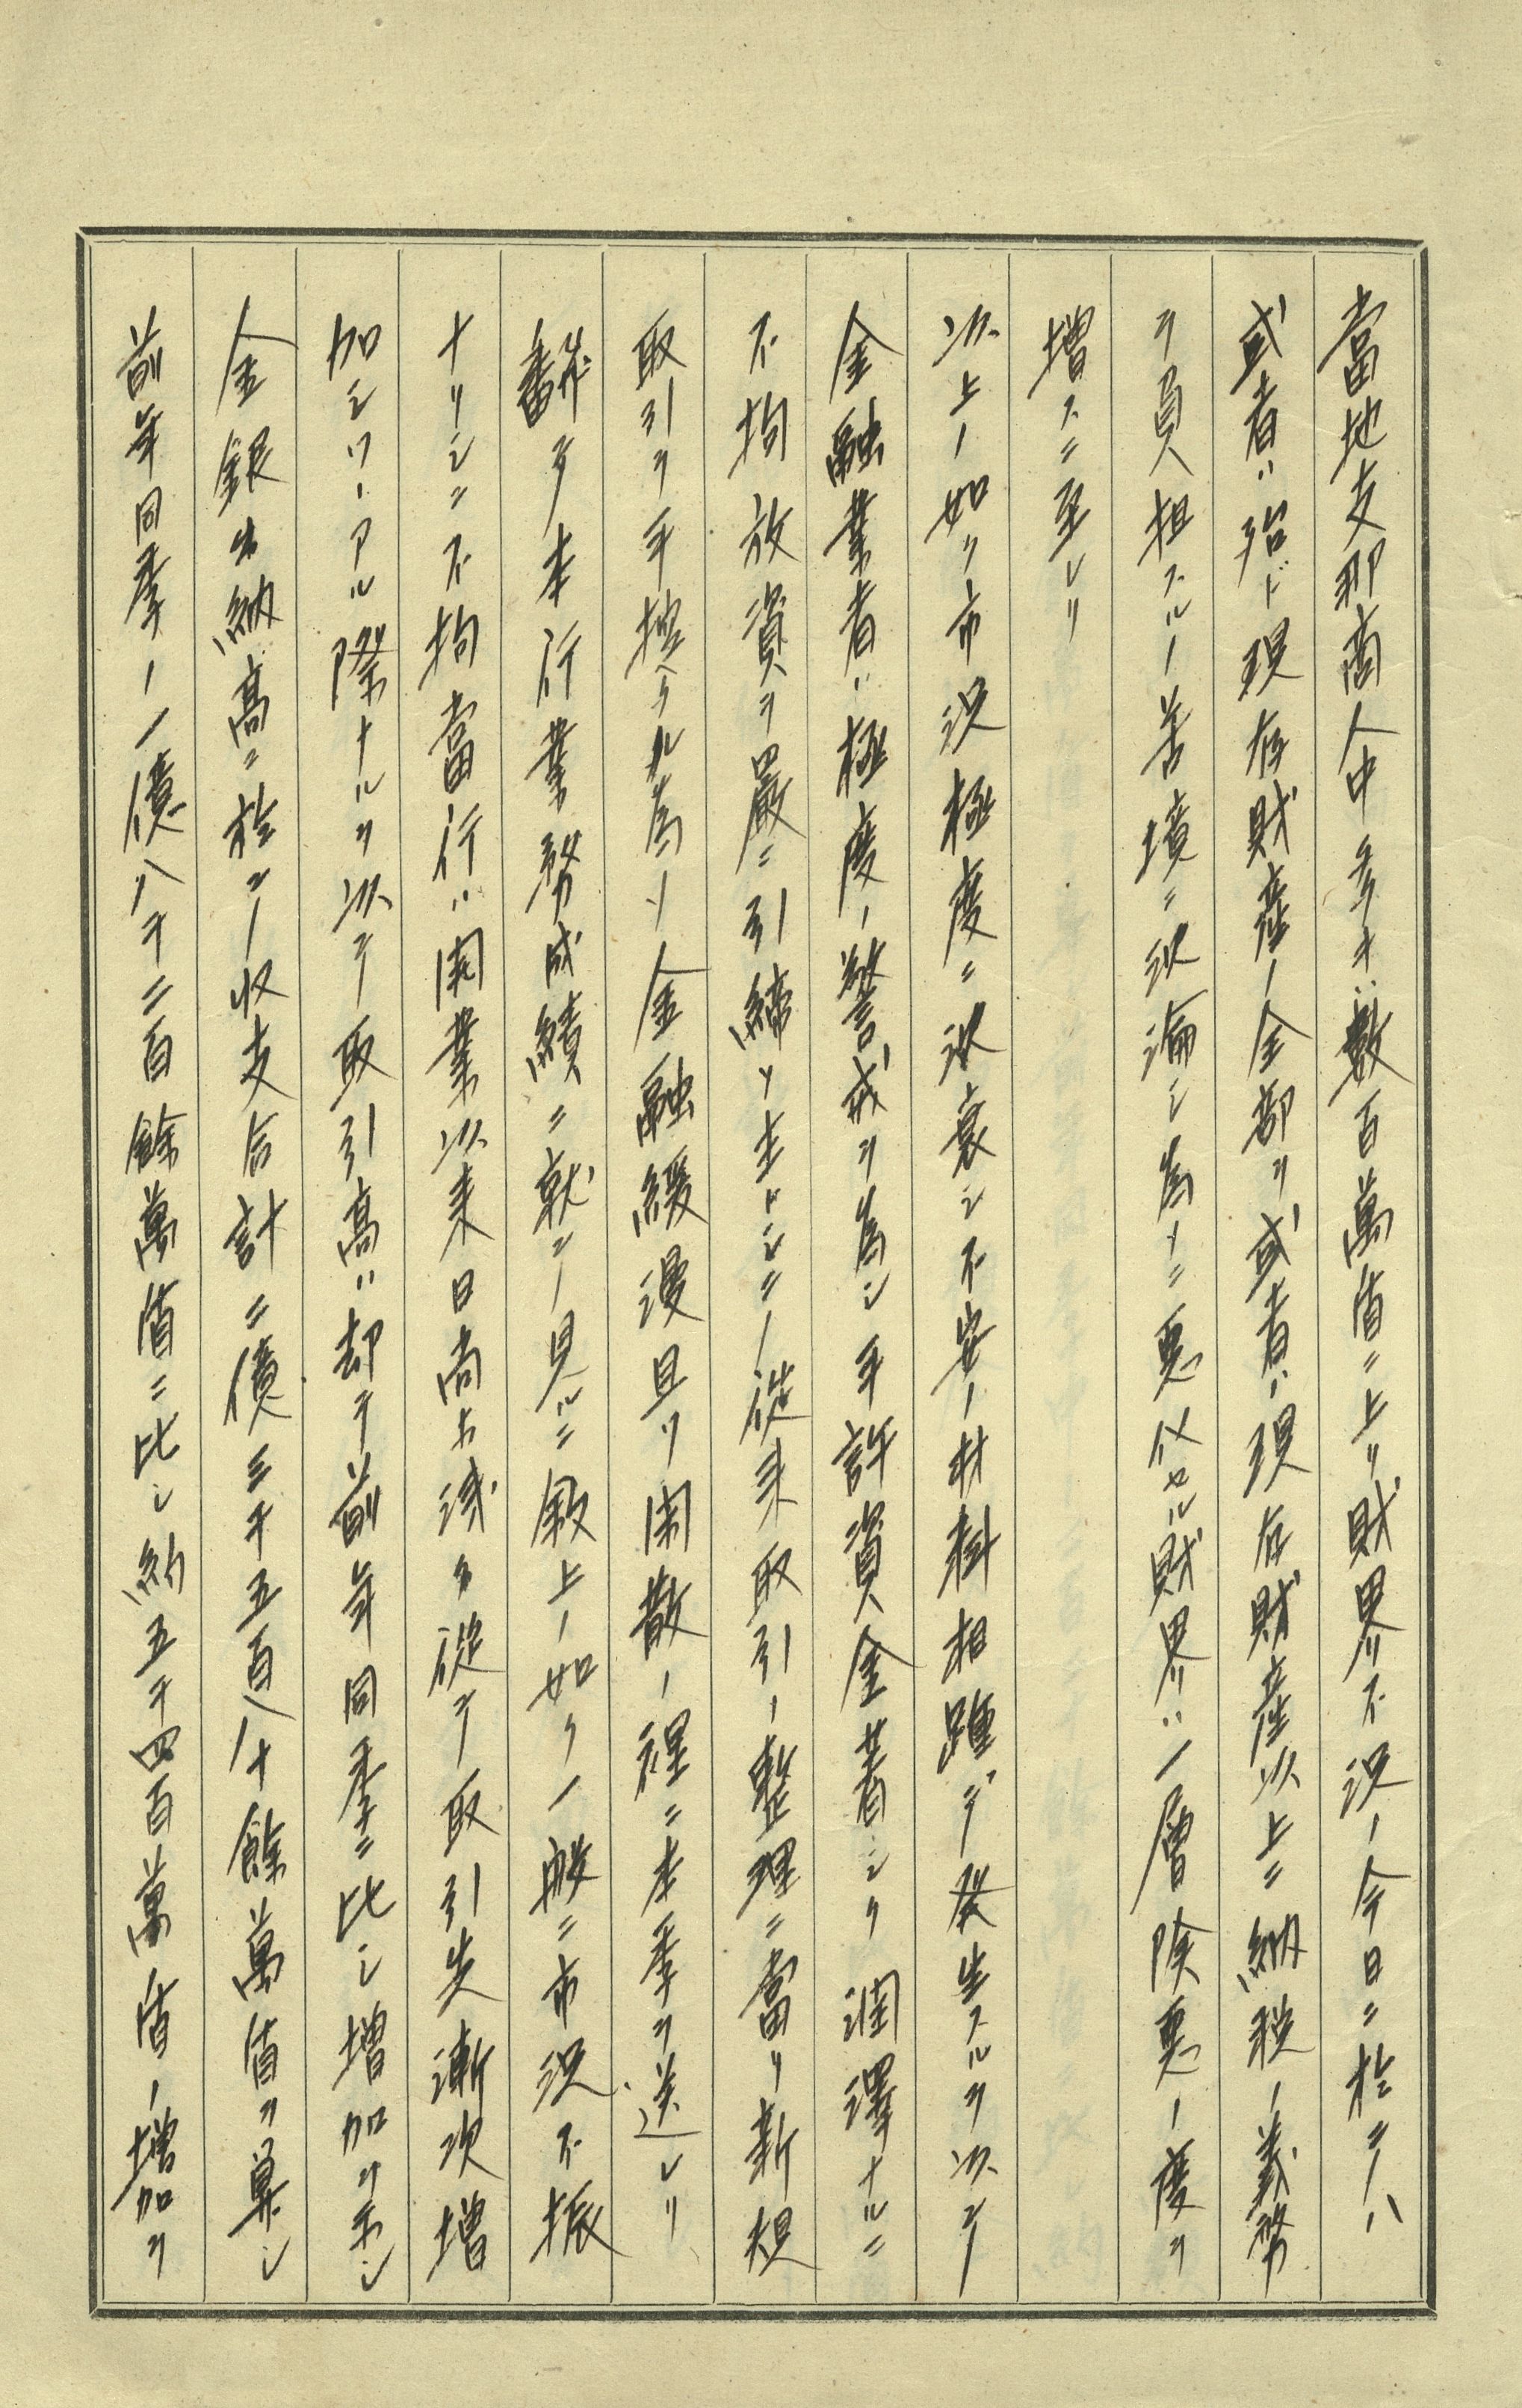 當地支那商人中多キハ數百萬盾ニ上リ財界不況ノ今日ニ於テハ
或者ハ殆ド現存財產ノ全部ヲ或者ハ現存財產以上ニ納稅ノ義務
ヲ負担スルノ苦境ニ沈淪シ為メニ悪化セル財界ハ一層険悪ノ度ヲ
増スニ至レリ
以上ノ如ク市況極度ニ沈衰シ不安ノ材料相踵デ發生スルヲ以テ
金融業者ハ極度ノ警戒ヲ為シ手許資金著シク潤澤ナルニ
不拘放資ヲ嚴ニ引締メ主トシテ従来取引ノ整理ニ當リ新規
取引ヲ手控ヘタル為メ金融緩漫且ツ閑散ノ裡ニ本季ヲ送レリ
飜テ本行業務成績ニ就テ見ルニ敘上ノ如ク一般ニ市況不振
ナリシニ不拘當行ハ開業以来日尚ホ浅ク従テ取引先漸次増
加シツヽアル際ナルヲ以テ取引高ハ却テ前年同季ニ比シ増加ヲ示シ
金銀出納高ニ於テ収支合計二億三千五百八十餘萬盾ヲ算シ
前年同季ノ一億八千二百餘萬盾ニ比シ約五千四百萬盾ノ増加ヲ